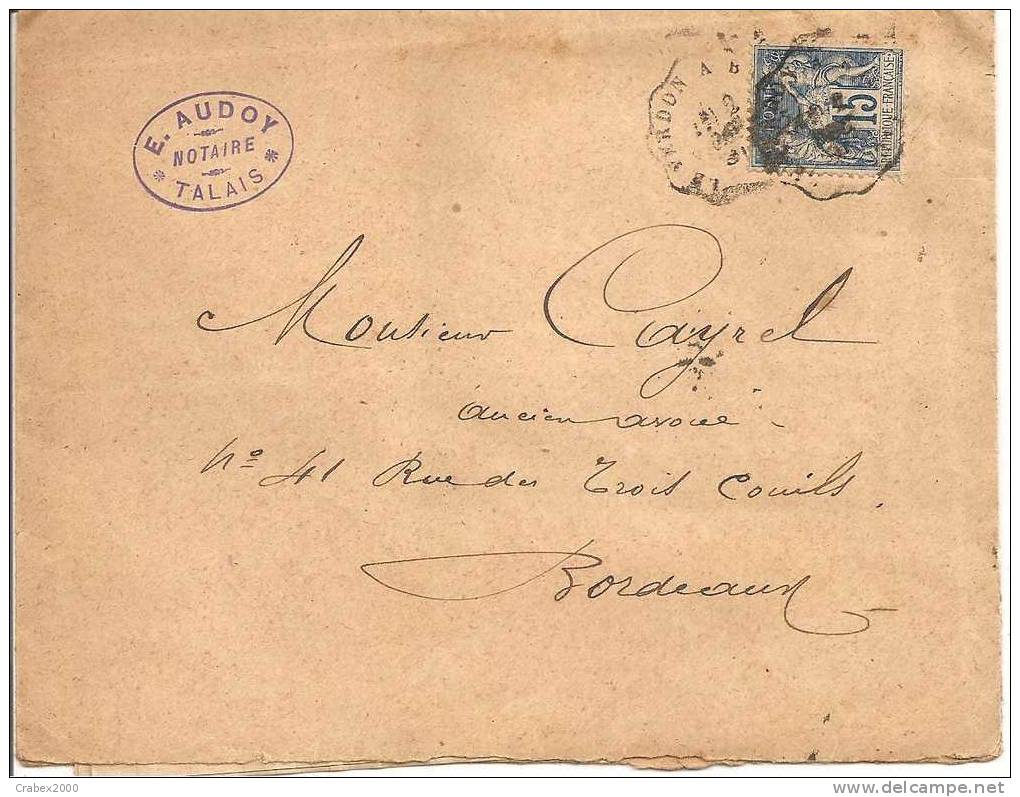 E. AUDOY
NOTAIRE
* TALAIS *
LE VERDON A B
POSTE
15
REPUBLIQUE FRANÇAISE
Monsieur Cayrel
ancien avoué
N° 41 Rue des Trois Conils
Bordeaux
Crabex2000
www.delcampe.net